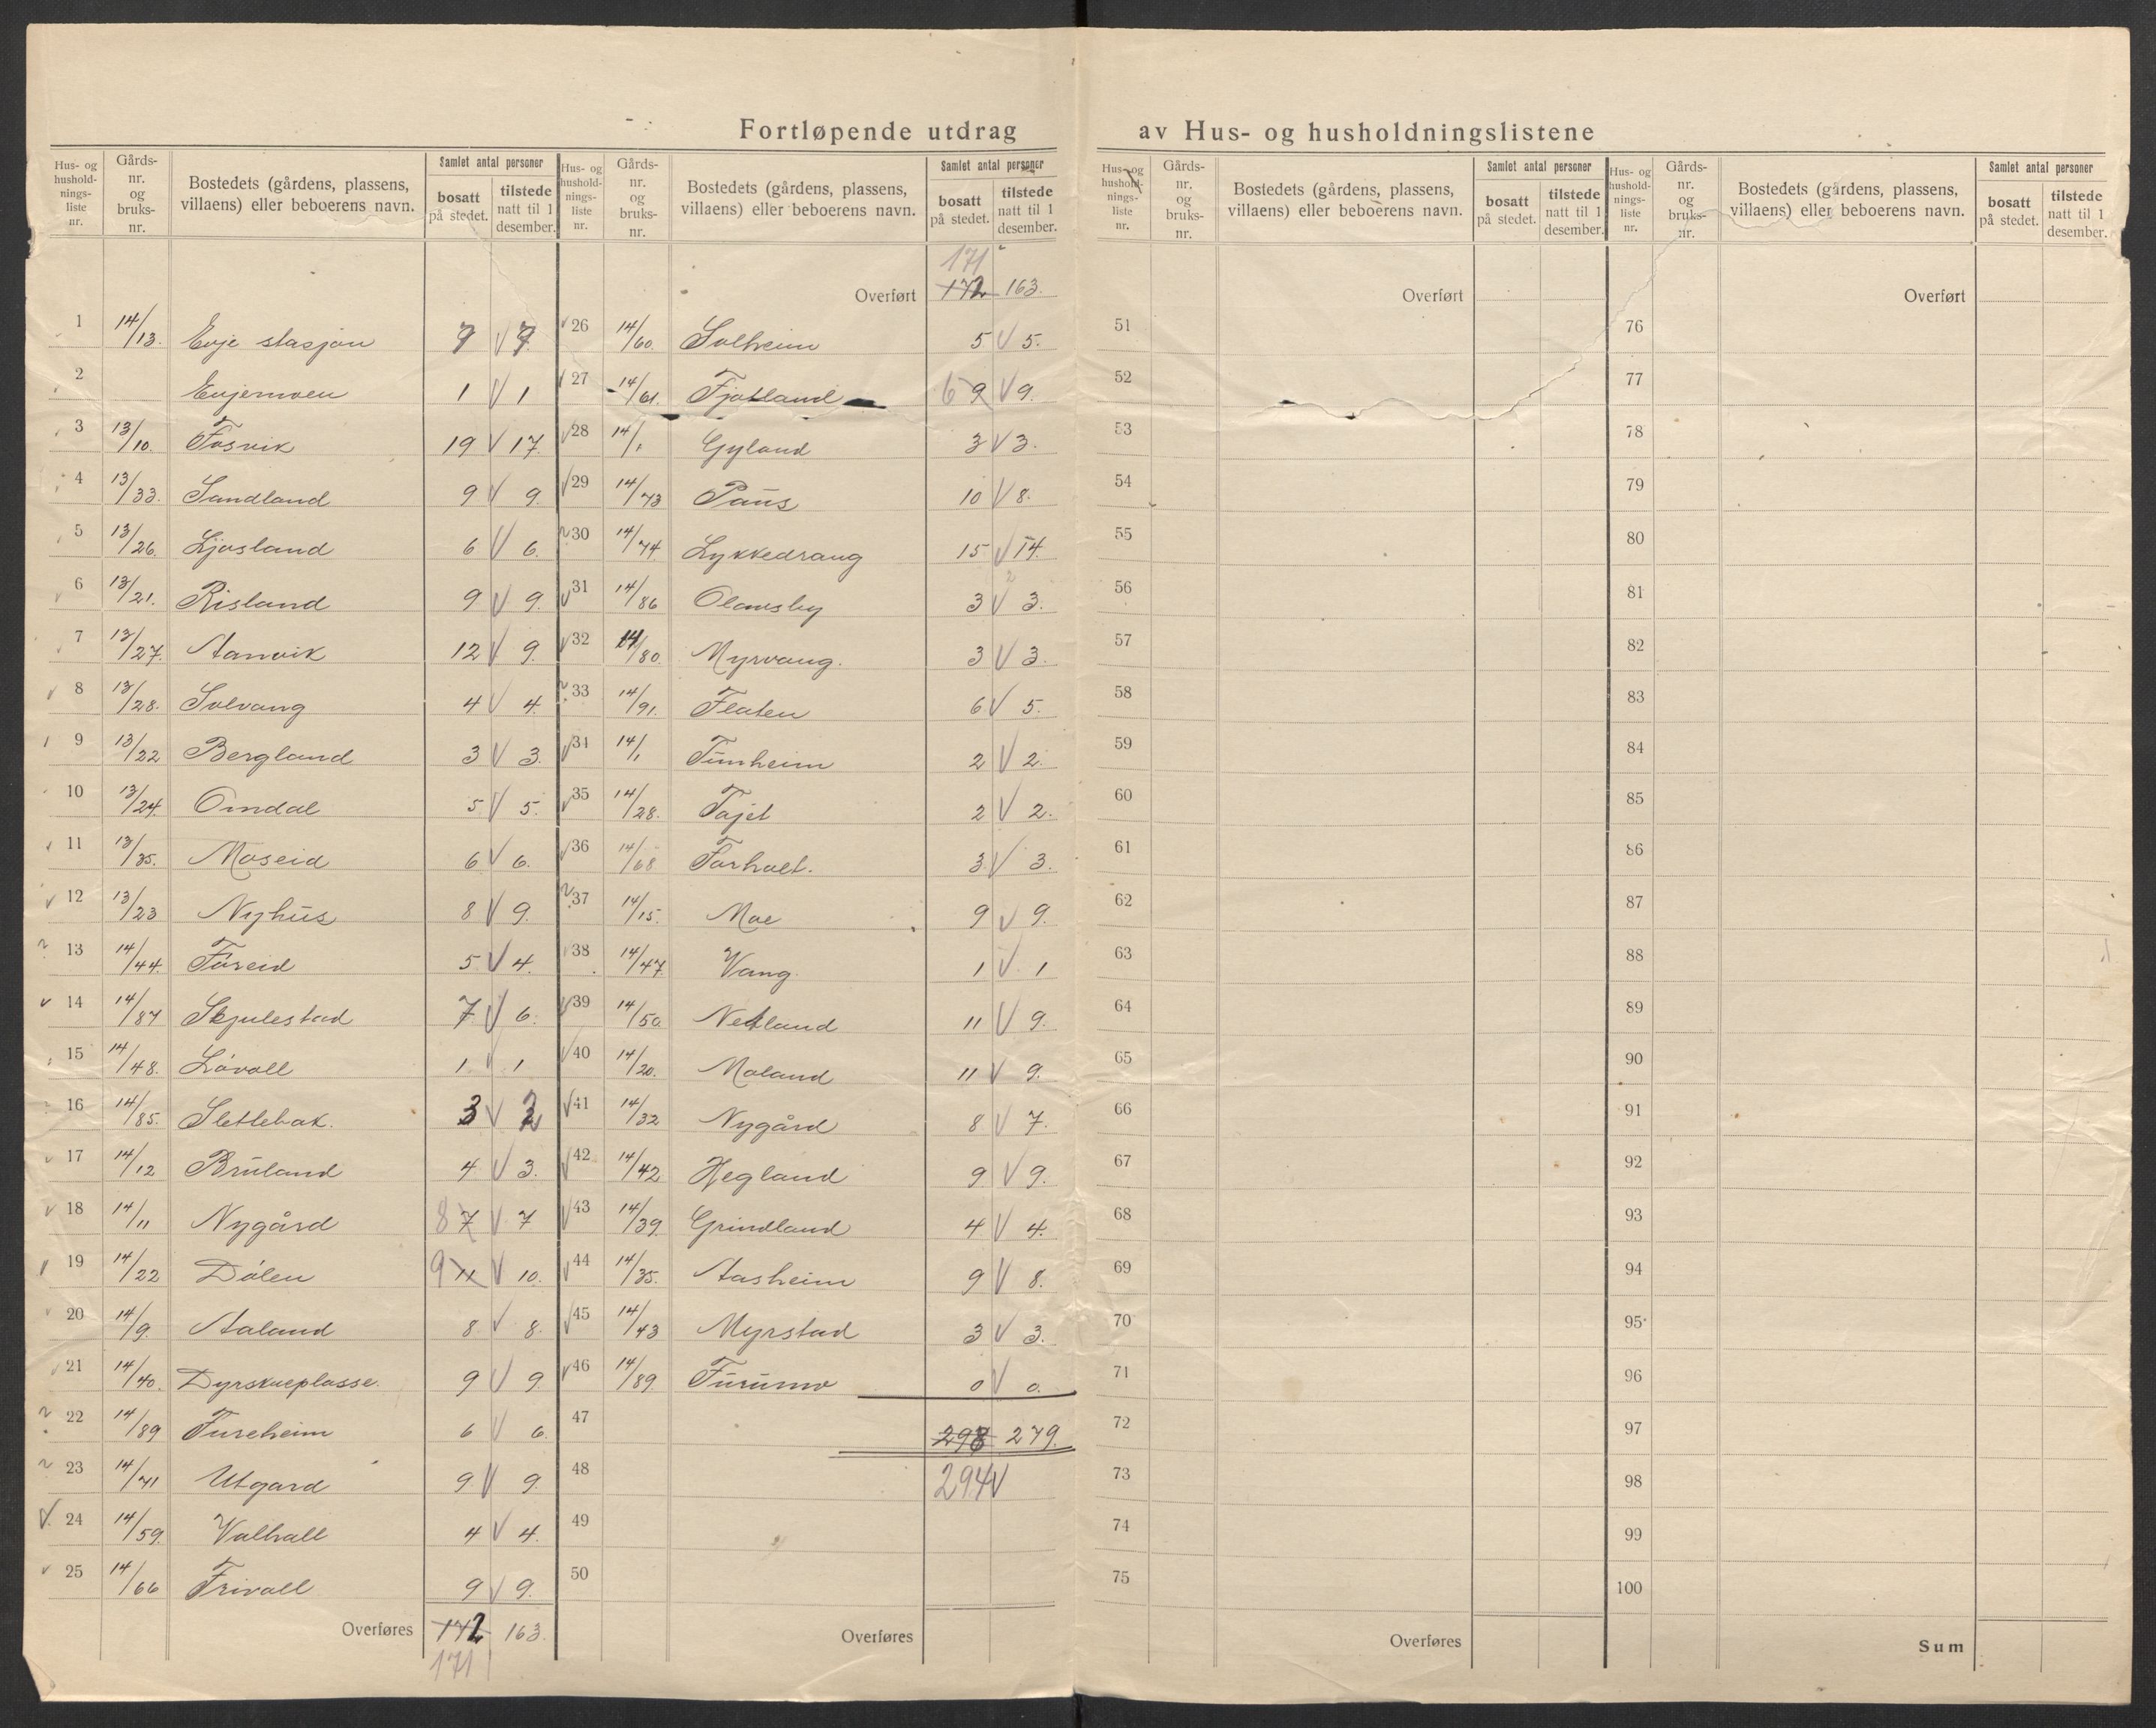 Fortløpende utdrag av Hus- og husholdningslistene
Hus- og husholdningsliste nr. | Gårdsnr. og bruksnr. | Bostedets (gårdens, plassens, villaens) eller beboerens navn. | Samlet antal personer | bosatt på stedet. | tilstede natt til 1 desember.
1 14/13. Evje stasjon 7 V 7
2 Evjemoen 1 V 1
3 13/10. Fosvik 19 V 17.
4 13/33. Sandland 9 V 9.
5 13/26. Ljosland 6 V 6.
6 13/21. Risland 9 V 9.
7 13/27. Aamvik 12 V 9.
8 13/28. Solvang 4 V 4.
9 13/22 Bergland 3 V 3.
10 13/24. Omdal 5 V 5.
11 13/35. Moseid 6 V 6.
12 13/23 Nyhus 8 V 9.
13 14/44. Foreid 5 V 4.
14 14/87 Skjulestad 7 V 6.
15 14/48. Løvoll 1 V 1
16 14/85. Slettebak. 3 V 2
17 14/12 Bruland 4 V 3.
18 14/11 Nygård 8 7 V 7
19 14/22 Dølen 9 11 V 10.
20 14/9. Aaland 8 V 8.
21 14/40. Dyrskueplasse. 9 V 9
22 14/89 Fureheim 6 V 6
23 14/71 Utgard 9 V 9.
24 14/59. Valhall 4 V 4.
25 14/66 Frivoll 9 V 9.
Overføres 172 163.
171
Hus- og husholdningsliste nr. | Gårdsnr. og bruksnr. | Bostedets (gårdens, plassens, villaens) eller beboerens navn. | Samlet antal personer | bosatt på stedet. | tilstede natt til 1 desember.
171
Overført 172 163.
26 14/60. Solheim 5 V 5.
27 14/61. Fjotland 6 9 V 9.
28 14/1 Gyland 3 V 3.
29 14/73 Paus 10 V 8.
30 14/74. Lykkedrang 15 V 14.
31 14/86 Olausby 3 V 3.
32 14/80. Myrvang. 3 V 3.
33 14/91. Flaten 6 V 5.
34 14/1 Tunheim 2 V 2.
35 14/28. Fajet 2 V 2.
36 14/68 Torholt. 3 V 3.
37 14/15. Moe 9 V 9.
38 14/47 Vang. 1 V 1
39 14/50. Netland 11 V 9.
40 14/20. Moland 11 V 9.
41 14/32 Nygård 8 V 7.
42 14/42 Hegland 9 V 9.
43 14/39. Grindland 4 V 4.
44 14/35. Aasheim 9 V 8.
45 14/43 Myrstad 3 V 3.
46 14/89. Furumo 0 V 0.
47 298 279
48 294 V
49
50
Overføres
Hus- og husholdningsliste nr. | Gårdsnr. og bruksnr. | Bostedets (gårdens, plassens, villaens) eller beboerens navn. | Samlet antal personer | bosatt på stedet. | tilstede natt til 1 desember.
Overført
51
52
53
54
55
56
57
58
59
60
61
62
63
64
65
66
67
68
69
70
71
72
73
74
75
Overføres
Hus- og husholdningsliste nr. | Gårdsnr. og bruksnr. | Bostedets (gårdens, plassens, villaens) eller beboerens navn. | Samlet antal personer | bosatt på stedet. | tilstede natt til 1 desember.
Overført
76
77
78
79
80
81
82
83
84
85
86
87
88
89
90
91
92
93
94
95
96
97
98
99
100
Sum